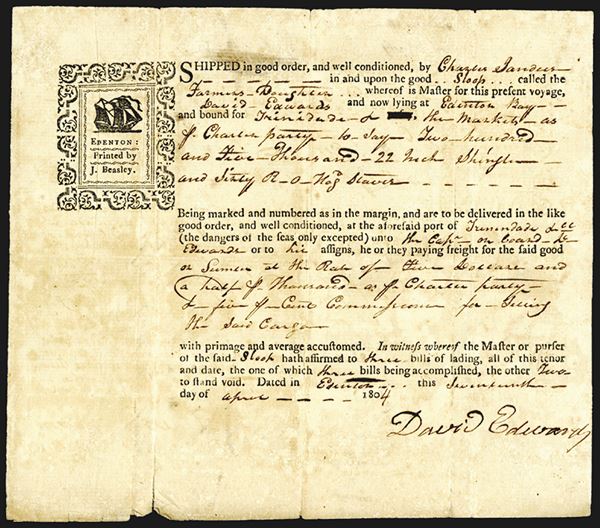 EDENTON:
Printed by
J. Beasley.
SHIPPED in good order, and well conditioned, by Charles
in and upon the good Sloop called the
Farmers whereof is Master for this present voyage,
David Edwards and now lying at Edenton Bay
and bound for Trinidade & the Market as
Charter party to say Two hundred
and Five Thousand 22 Inch Shingle
and Sixty R. O. Hogd Staves
Being marked and numbered as in the margin, and are to be delivered in the like
good order, and well conditioned, at the aforesaid port of Trinindade
(the dangers of the seas only excepted) unto the Capt on board
Edwards or to his assigns, he or they paying freight for the said good
at the Rate of Five Dollars and
a half Thousand as Charter party
& five Cent Commissions for
the Said Cargo
with primage and average accustomed. In witness whereof the Master or purser
of the said Sloop hath affirmed to three bills of lading, all of this tenor
and date, the one of which three bills being accomplished, the other Two
to stand void. Dated in Edenton this Seventeenth
day of April 1804
David Edwards